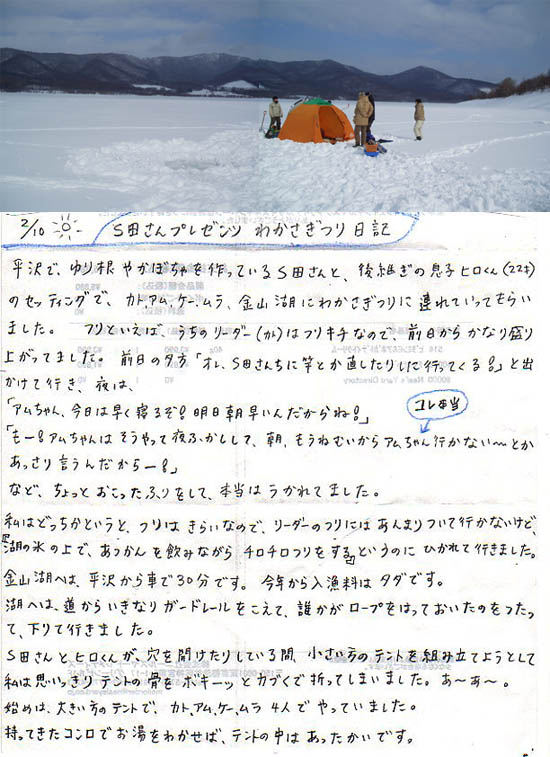 2/10 S田さんプレゼンツ わかさぎつり日記
平沢で、ゆり根やかぼちゃを作っているS田さんと、後継ぎの息子ヒロくん(22才)
のセッティングで、カト、アム、ケー、ムラ、金山湖にわかさぎつりに連れていってもらい
ました。 フリといえば、うちのリーダー(カト)はフリキチなので、前日からかなり盛り
上がってました。前日の夕方「オレ、S田さんちに竿とか直したりしに行ってくる!」と出
かけて行き、夜は、
「アムちゃん、今日は早く寝るぞ!明日朝早いんだからね!」
コレ本当
「もー!アムちゃんはそうやって夜ふかしして、朝、もうねむいからアムちゃん行かない〜とか
あっさり言うんだからー!」
など、ちょっとおこったふりをして、本当はうかれてました。
私はどっちかというと、フリはきらいなので、リーダーのフリにはあんまりついて行かないけど、
「湖の氷の上で、あつかんを飲みながらチロチロフリをする」というのにひかれて行きました。
金山湖へは、平沢から車で30分です。 今年から入漁料はタダです。
湖へは、道からいきなりガードレールをこえて、誰かがロープをはっておいたのをつたっ
て、下りて行きました。
S田さんとヒロくんが、穴を開けたりしている間、小さい方のテントを組み立てようとして
私は思いっきりテントの骨をボキーッとカづくで折ってしまいました。あ〜あ〜。
始めは、大きい方のテントで、カト、アム、ケー、ムラ 4人でやっていました。
持ってきたコンロでお湯をわかせば、テントの中はあったかいです。